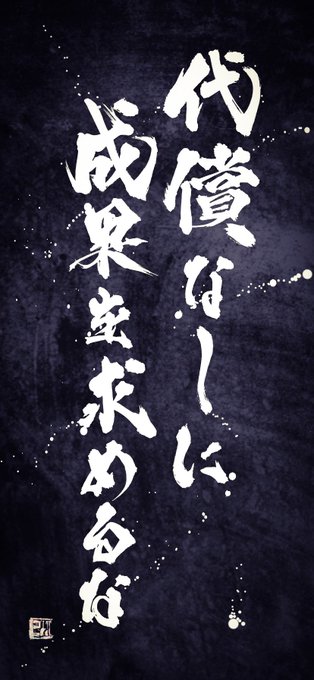 代償なしに
成果を求めるな